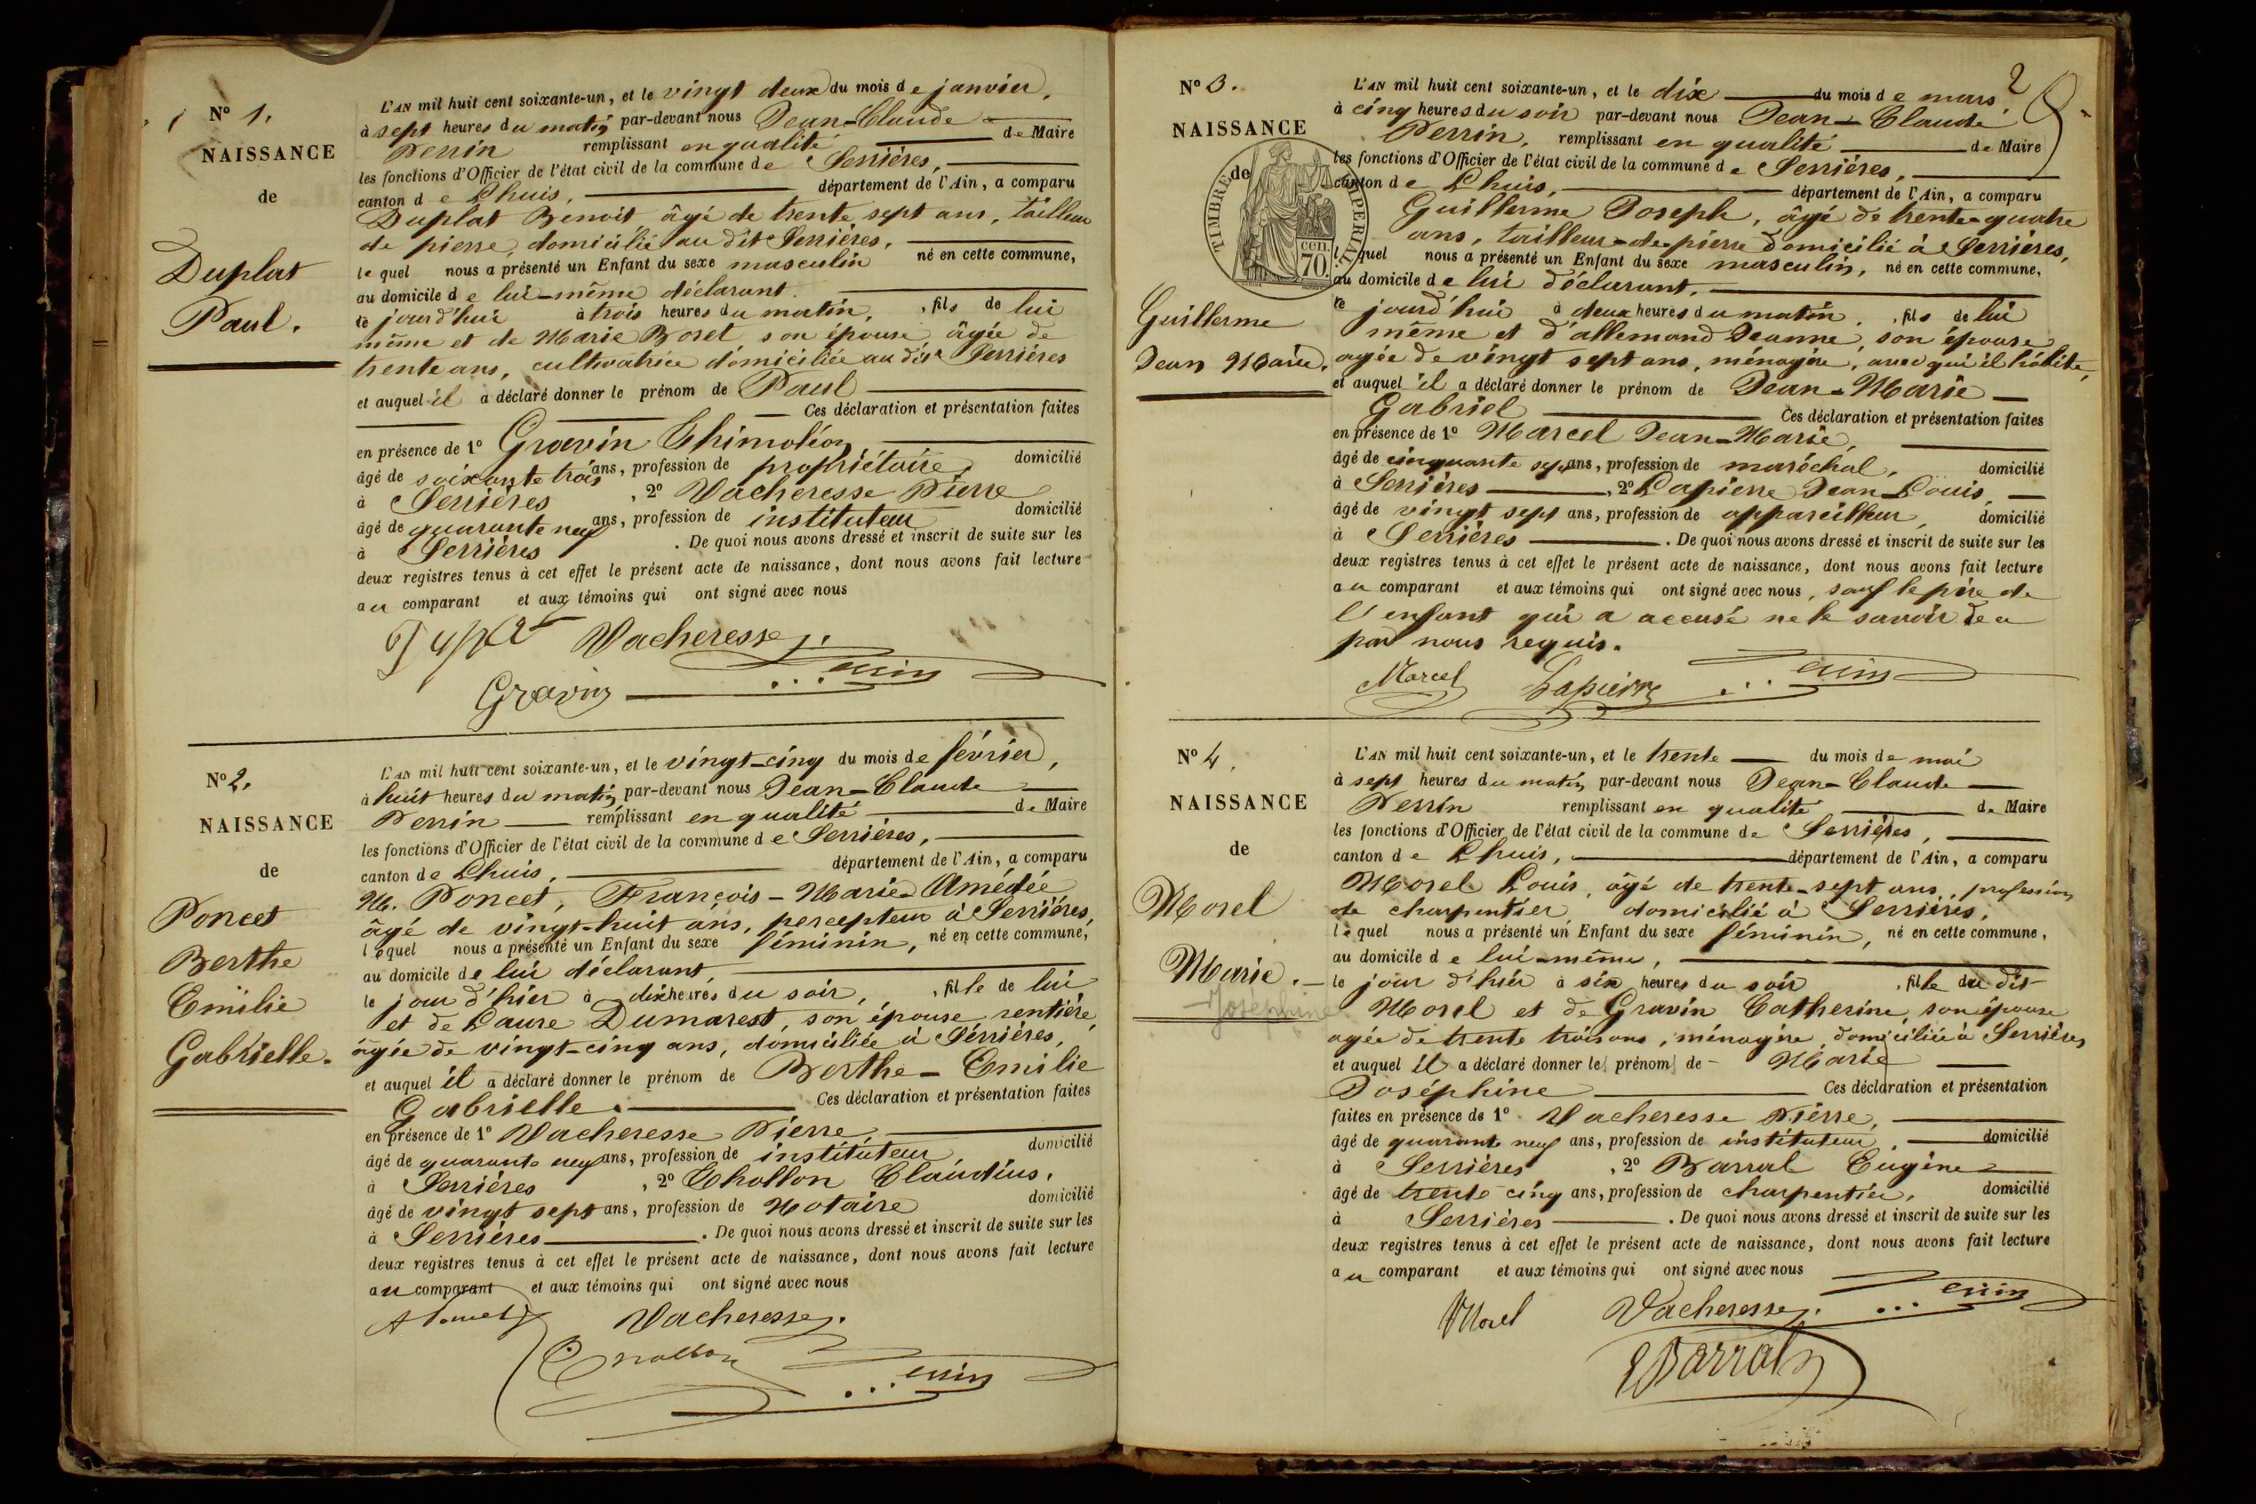 N° 1.
NAISSANCE
de
Duplat
Paul.
L'AN mil huit cent soixante-un, et le vingt deux du mois de janvier,
à sept heures du matin par-devant nous Jean-Claude
Perrin remplissant en qualité de Maire
les fonctions d'Officier de l'état civil de la commune de Serrières,
canton de Lhuis, département de l'Ain, a comparu
Duplat Benoit âgé de trente sept ans, tailleur
de pierre, domicilié au dit Serrières,
lequel nous a présenté un Enfant du sexe masculin né en cette commune,
au domicile de lui-même déclarant.
le jourd'hui à trois heures du matin, fils de lui
même et de Marie Borel son épouse âgée de
trente ans, cultivatrice domiciliée au dit Serrières
et auquel il a déclaré donner le prénom de Paul
Ces déclaration et présentation faites
en présence de 1° Gravin Thimoléon,
âgé de soixante trois ans, profession de propriétaire, domicilié
à Serrières, 2° Vacheresse Pierre
âgé de quarante neuf ans, profession de instituteur domicilié
à Serrières. De quoi nous avons dressé et inscrit de suite sur les
deux registres tenus à cet effet le présent acte de naissance, dont nous avons fait lecture
au comparant et aux témoins qui ont signé avec nous
Duplat Vacheresse
Gravin Perrin
N° 2.
NAISSANCE
de
Poncet
Berthe
Emilie
Gabrielle.
L'AN mil huit cent soixante-un, et le vingt-cinq du mois de février,
à huit heures du matin par-devant nous Jean-Claude
Perrin remplissant en qualité de Maire
les fonctions d'Officier de l'état civil de la commune de Serrières,
canton de Lhuis, département de l'Ain, a comparu
M. Poncet, François-Marie-Amédée
âgé de vingt-huit ans, percepteur à Serrières,
lequel nous a présenté un Enfant du sexe féminin, né en cette commune,
au domicile de lui déclarant,
le jour d'hier à dix heures du soir, fille de lui
et de Laure Dumarest, son épouse rentière,
âgée de vingt-cinq ans, domiciliée à Serrières,
et auquel il a déclaré donner le prénom de Berthe-Emilie
Gabrielle. Ces déclaration et présentation faites
en présence de 1° Vacheresse Pierre,
âgé de quarante neuf ans, profession de instituteur domicilié
à Serrières, 2° Chollon Claudius,
âgé de vingt sept ans, profession de Notaire domicilié
à Serrières. De quoi nous avons dressé et inscrit de suite sur les
deux registres tenus à cet effet le présent acte de naissance, dont nous avons fait lecture
au comparant et aux témoins qui ont signé avec nous
Vacheresse
Perrin
2
N° 3.
NAISSANCE
de
TIMBRE IMPERIAL
cen.
70.
Guillerme
Jean Marie.
L'AN mil huit cent soixante-un, et le dix du mois de mars
à cinq heures du soir par-devant nous Jean-Claude
Perrin, remplissant en qualité de Maire
les fonctions d'Officier de l'état civil de la commune de Serrières,
canton de Lhuis, département de l'Ain, a comparu
Guillerme Joseph, âgé de trente-quatre
ans, tailleur-de-pierre domicilié à Serrières,
lequel nous a présenté un Enfant du sexe masculin, né en cette commune,
au domicile de lui déclarant,
le jourd'hui à deux heures du matin, fils de lui
même et d'allemand Jeanne, son épouse
agée de vingt sept ans, ménagère, avec qui il habite,
et auquel il a déclaré donner le prénom de Jean-Marie
Gabriel Ces déclaration et présentation faites
en présence de 1° Marcel Jean-Marie,
âgé de cinquante sept ans, profession de maréchal, domicilié
à Serrières, 2° Lapierre Jean-Louis,
âgé de vingt sept ans, profession de appareilleur, domicilié
à Serrières. De quoi nous avons dressé et inscrit de suite sur les
deux registres tenus à cet effet le présent acte de naissance, dont nous avons fait lecture
au comparant et aux témoins qui ont signé avec nous, sauf le père de
l'enfant qui a accusé ne le savoir de a
par nous requis.
Marcel Lapierre Perrin
N° 4.
NAISSANCE
de
Morel
Marie.
Joséphine
L'AN mil huit cent soixante-un, et le trente du mois de mai
à sept heures du matin par-devant nous Jean-Claude
Perrin remplissant en qualité de Maire
les fonctions d'Officier de l'état civil de la commune de Serrières,
canton de Lhuis, département de l'Ain, a comparu
Morel Louis, âgé de trente-sept ans, profession
de charpentier, domicilié à Serrières,
lequel nous a présenté un Enfant du sexe féminin, né en cette commune,
au domicile de lui-même,
le jour d'hier à six heures du soir, fille du dit
Morel et de Gravin Catherine, son épouse
agée de trente trois ans, ménagère, domiciliée à Serrières
et auquel il a déclaré donner le prénom de Marie
Joséphine Ces déclaration et présentation
faites en présence de 1° Vacheresse Pierre,
âgé de quarante neuf ans, profession de instituteur, domicilié
à Serrières, 2° Barral Eugène
âgé de trente-cinq ans, profession de charpentier, domicilié
à Serrières. De quoi nous avons dressé et inscrit de suite sur les
deux registres tenus à cet effet le présent acte de naissance, dont nous avons fait lecture
au comparant et aux témoins qui ont signé avec nous
Morel Vacheresse Perrin
EBarral